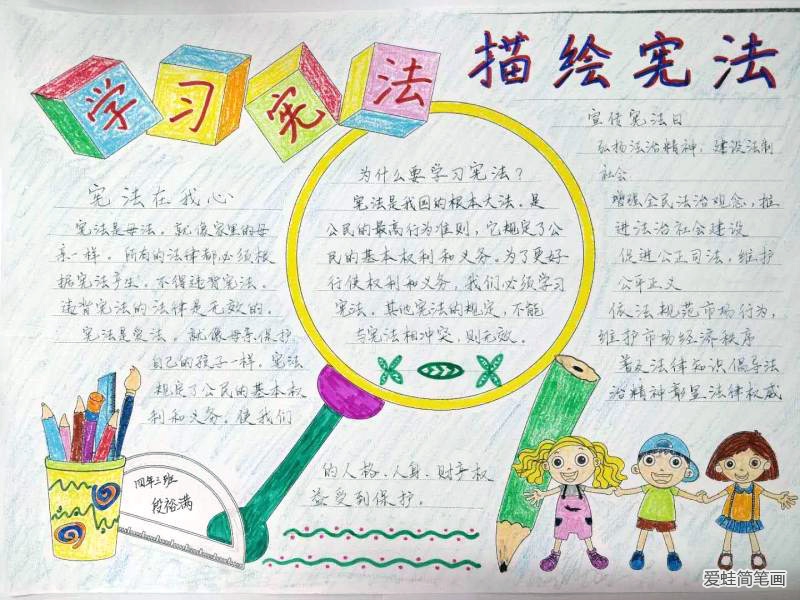 学习宪法
描绘宪法
宪法在我心
宪法是母法，就像家里的母
亲一样。所有的法律都必须根
据宪法产生，不得违背宪法。
违背宪法的法律是无效的。
宪法是爱法。就像母亲保护
自己的孩子一样。宪法
规定了公民的基本权
利和义务。使我们
的人格、人身、财产权
益受到保护。
为什么要学习宪法？
宪法是我国的根本大法。是
公民的最高行为准则，它规定了公
民的基本权利和义务。为了更好
行使权利和义务，我们必须学习
宪法。其他宪法的规定，不能
与宪法相冲突，则无效。
宣传宪法日
弘扬法治精神，建设法制
社会
增强全民法治观念，推
进法治社会建设
促进公正司法，维护
公平正义
依法规范市场行为，
维护市场经济秩序
普及法律知识倡导法
治精神彰显法律权威
四年三班
段裕满
爱蛙简笔画